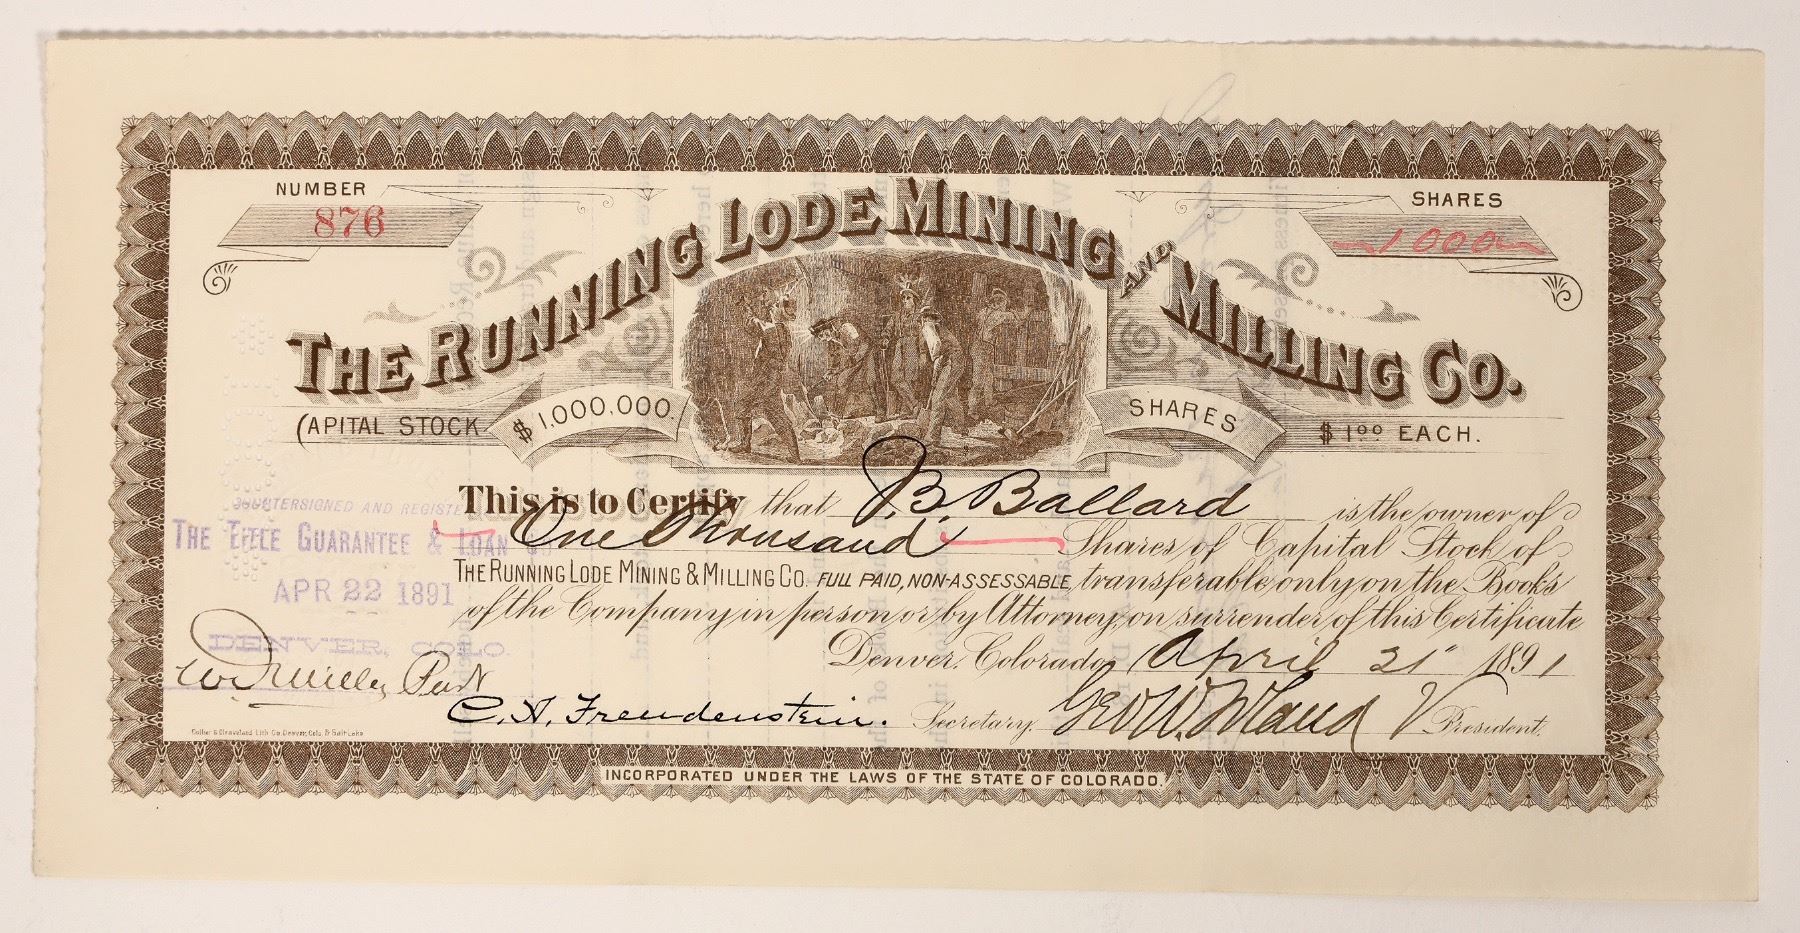 NUMBER
876
SHARES
1000
THE RUNNING LODE MINING AND MILLING CO.
CAPITAL STOCK $1,000,000. SHARES $1.00 EACH.
This is to Certify that J.B. Ballard is the owner of
One Thousand Shares of Capital Stock of
THE RUNNING LODE MINING & MILLING CO. FULL PAID, NON-ASSESSABLE, transferable only on the Books
of the Company in person or by Attorney, on surrender of this Certificate
Denver, Colorado, April 21" 1891
COUNTERSIGNED AND REGISTE
THE TITLE GUARANTEE & LOAN CO
APR 22 1891
DENVER, COLO.
C. H. Freudenstein. Secretary. Geo W. V President.
Denver, Colo. & Salt Lake
INCORPORATED UNDER THE LAWS OF THE STATE OF COLORADO.